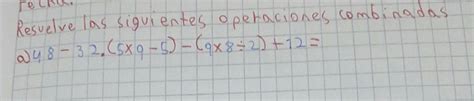 Resuelve las siguientes operaciones combinadas
a) 48-32.(5x9-5)-(9x8÷2)+12=